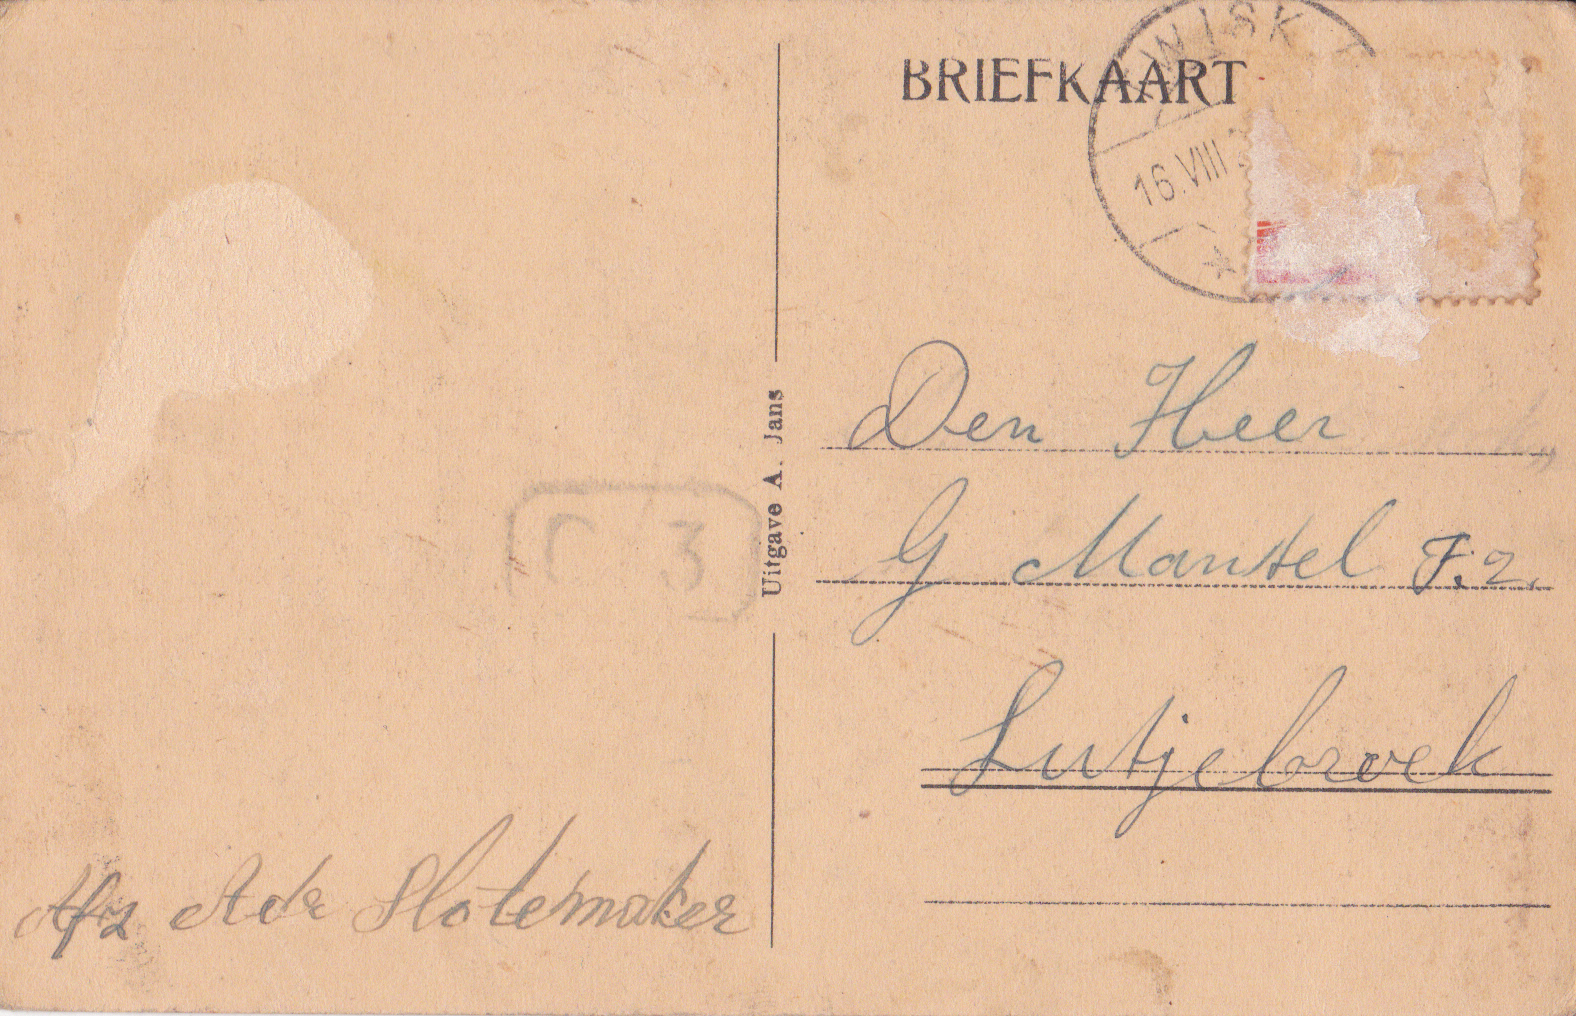 BRIEFKAART
WISK
16.VIII
Uitgave A. Jans
Den Heer
G Mantel F.z.
Lutjebroek
Afz Ade Slotemaker
3